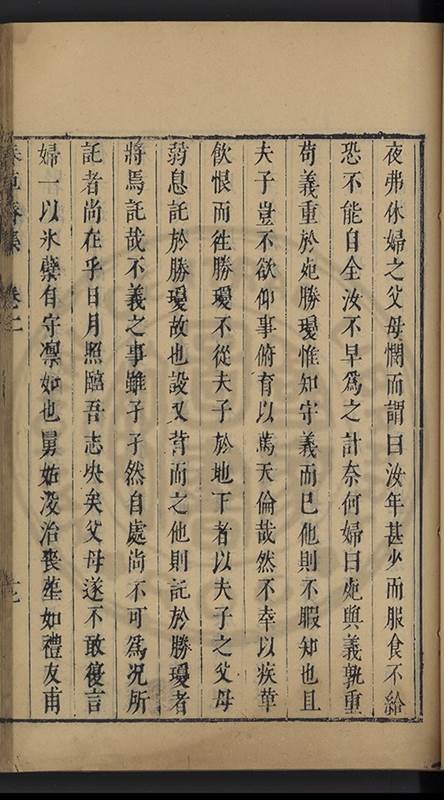 夜弗休婦之父母憫而謂曰汝年甚少而服食不給
恐不能自全汝不早為之計奈何婦曰死與義孰重
苟義重於死勝瓊惟知守義而已他則不暇知也且
夫子豈不欲仰事俯育以篤天倫哉然不幸以疾革
飲恨而徃勝瓊不從夫子於地下者以夫子之父母
弱息託於勝瓊故也設又背而之他則託於勝瓊者
將焉託哉不義之事雖孑孑然自處尚不可為况所
託者尚在乎日月照臨吾志决矣父母遂不敢復言
婦一以氷櫱有守凛如也舅姑沒治喪塟如禮友甫
集 卷二